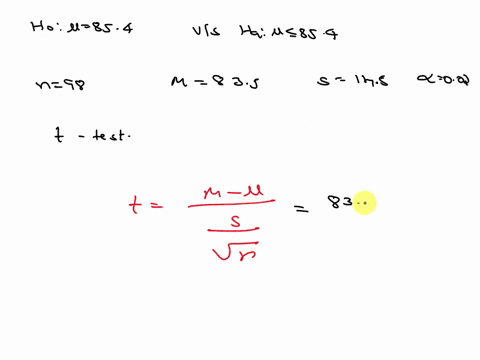 H0: μ=85.4 v/s Ha: μ≤85.4
n=98 M=83.5 s=14.8 α=0.02
t - test.
t = M-μ / s/√n = 83..